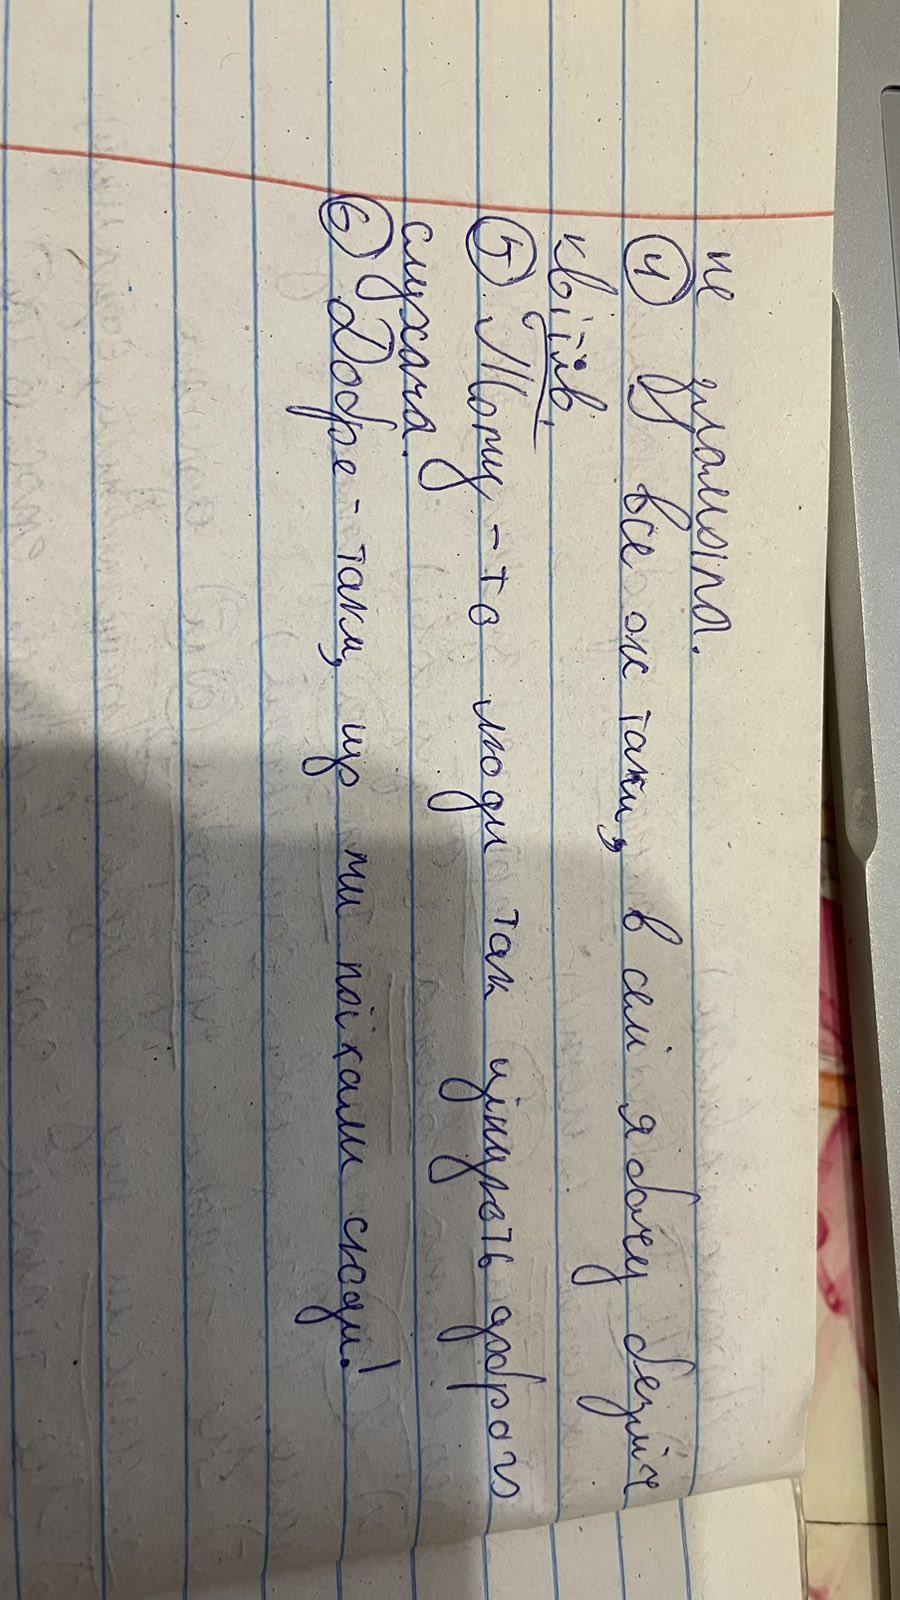 не зламала.
④ І все ж таки, в селі я бачу безліч
квітів.
⑤ Тому-то люди так цінують доброго
слухача.
⑥ Добре-таки, що ми поїхали сюди!